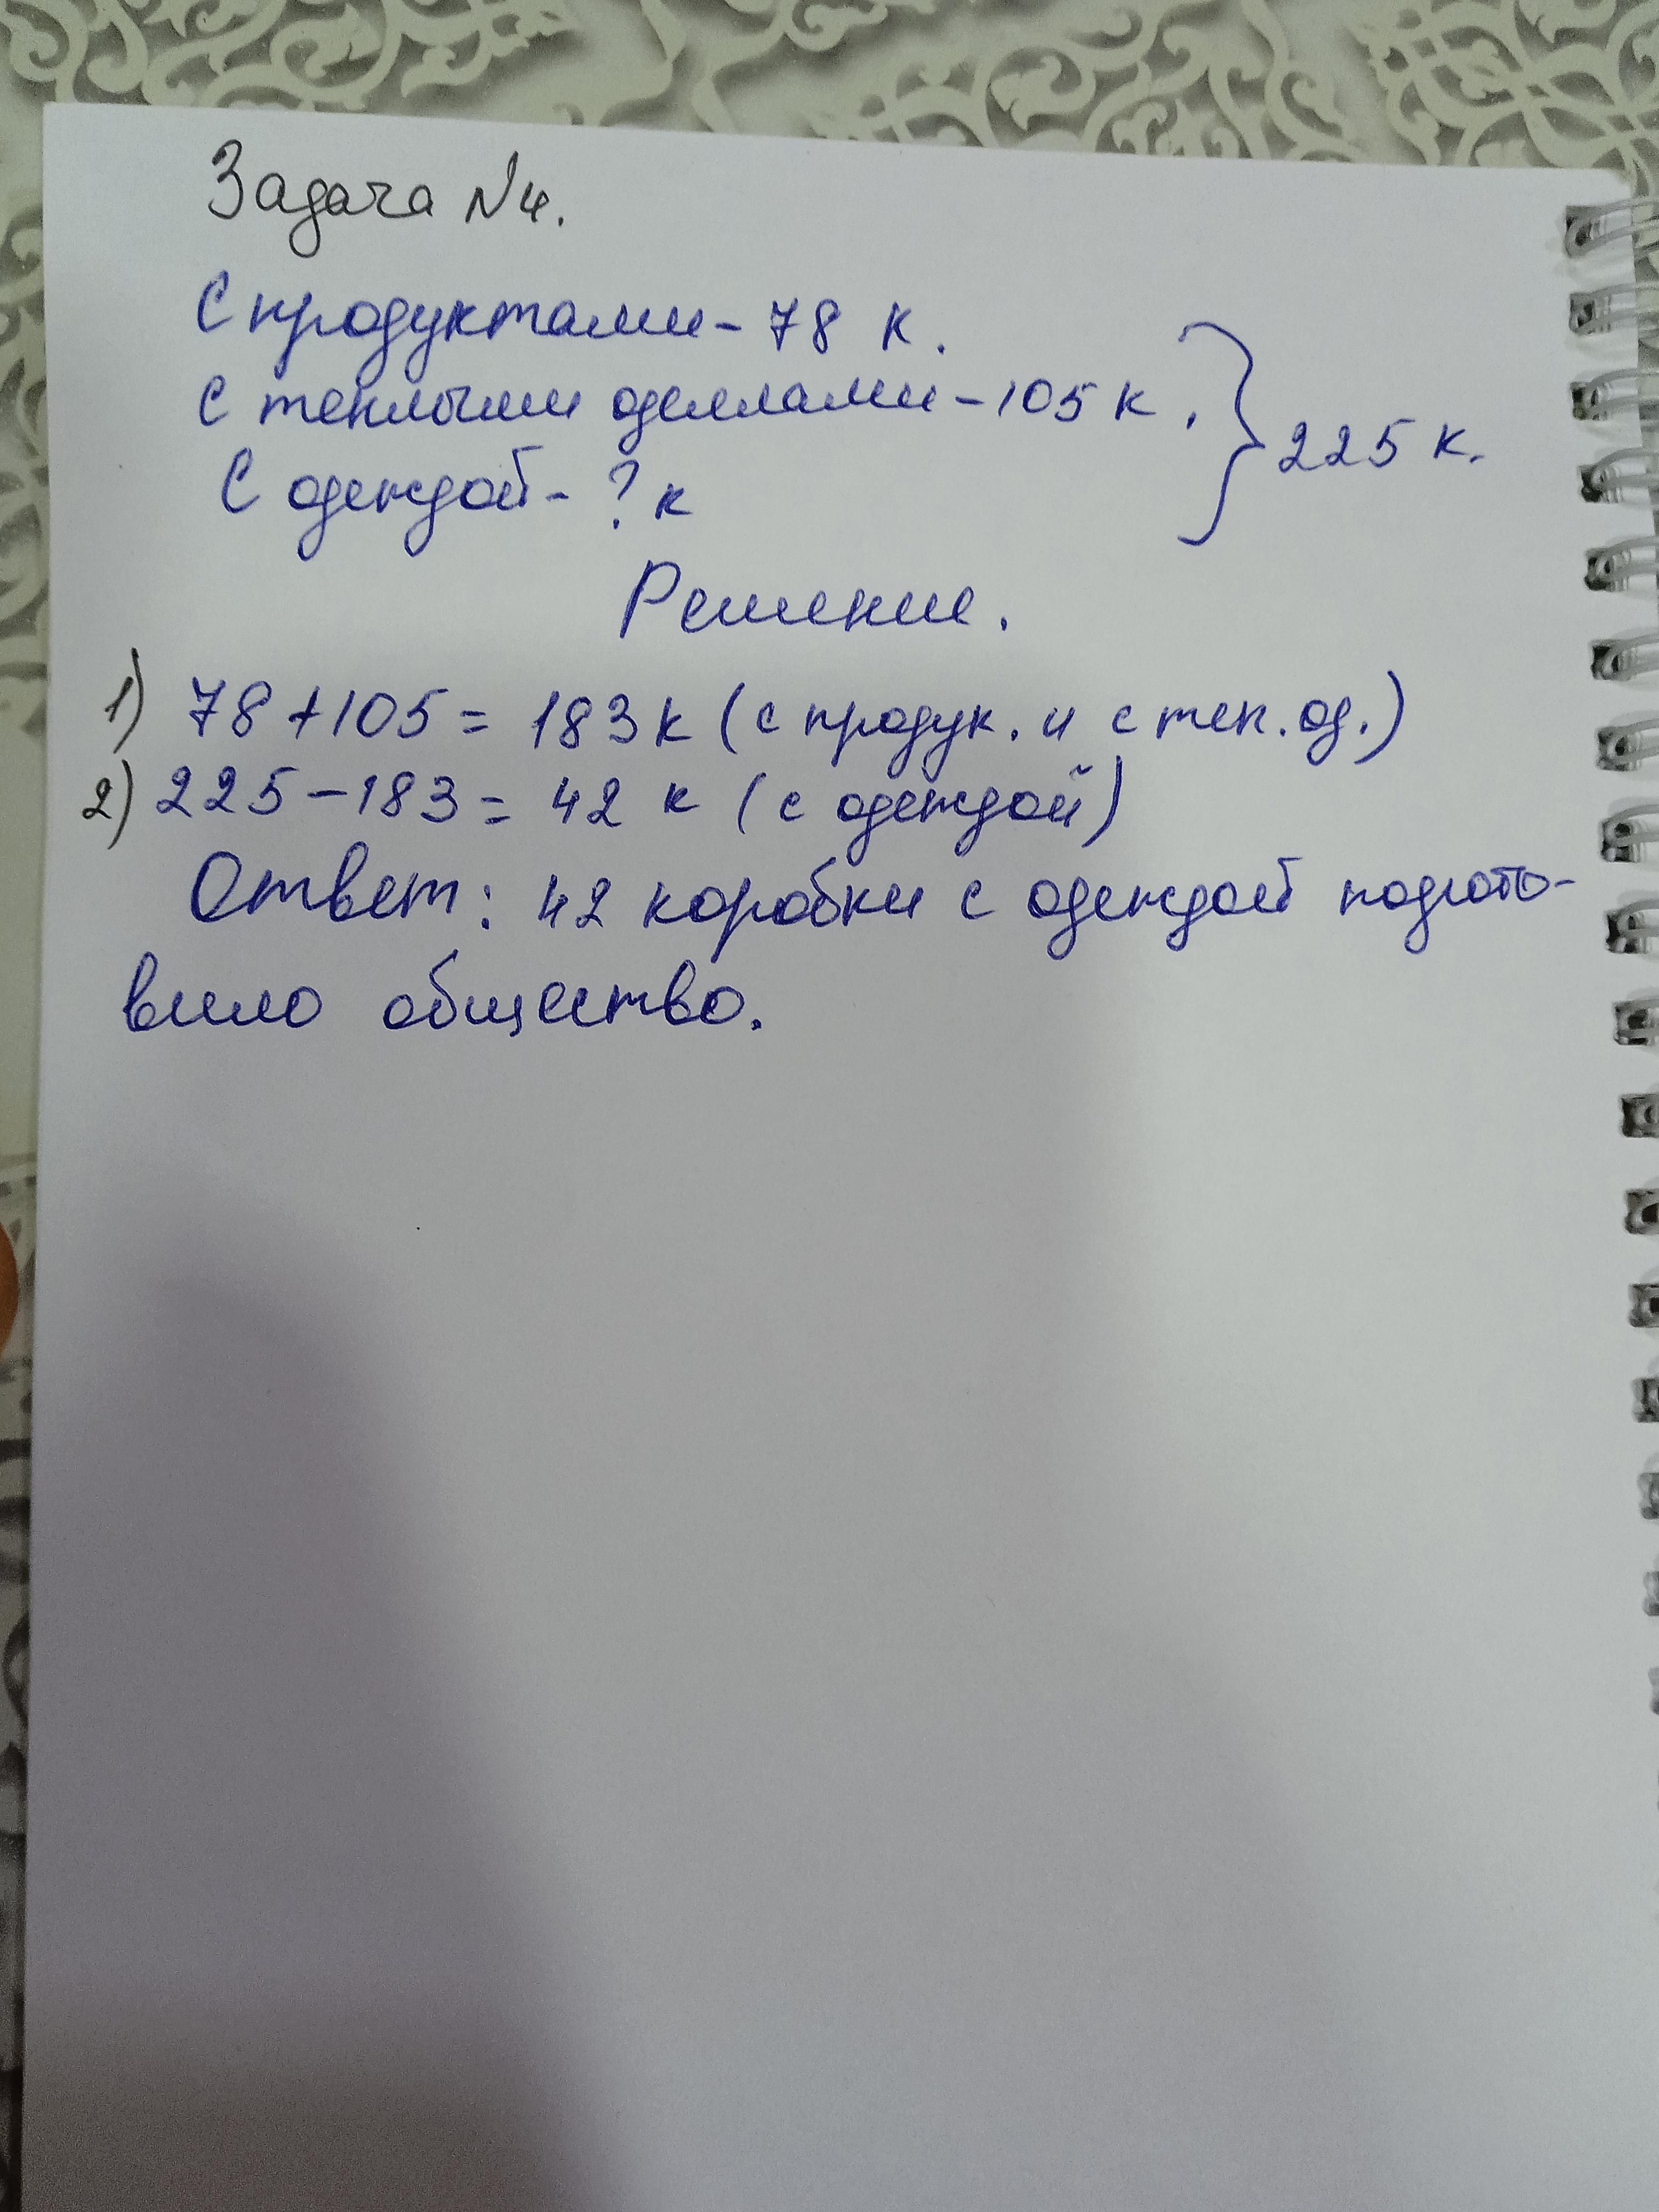 Задача №4.
С продуктами - 78 к.
С теплыми одеялами - 105 к.
С одеждой - ? к
} 225 к.
Решение.
1) 78 + 105 = 183 к (с продук. и с теп. од.)
2) 225 - 183 = 42 к (с одеждой)
Ответ: 42 коробки с одеждой подгото-
вило общество.